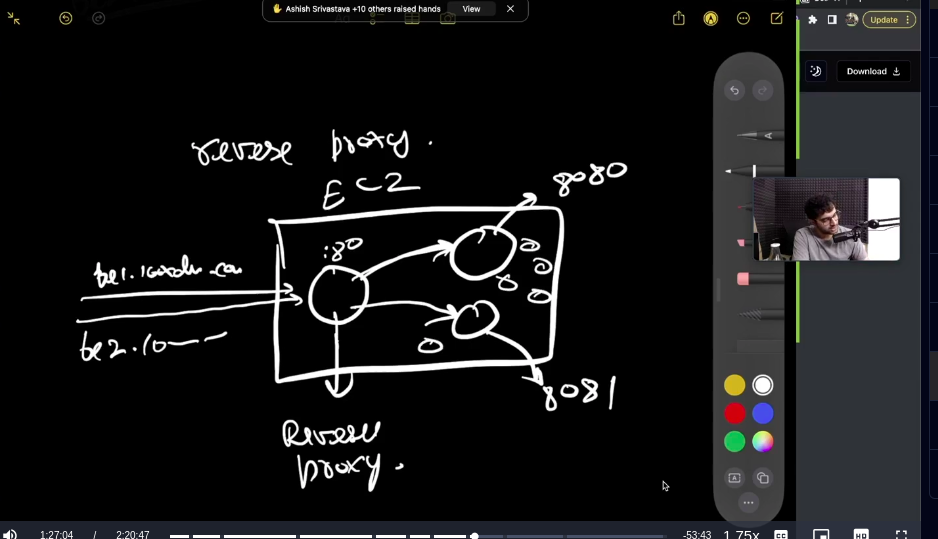 Ashish Srivastava +10 others raised hands View
Update
Download
reverse proxy.
EC2
8080
:80
be1.100xdevs.com
be2.10
8081
Reverse
proxy.
1:27:04 / 2:20:47
-53:43 1.75x CC HD